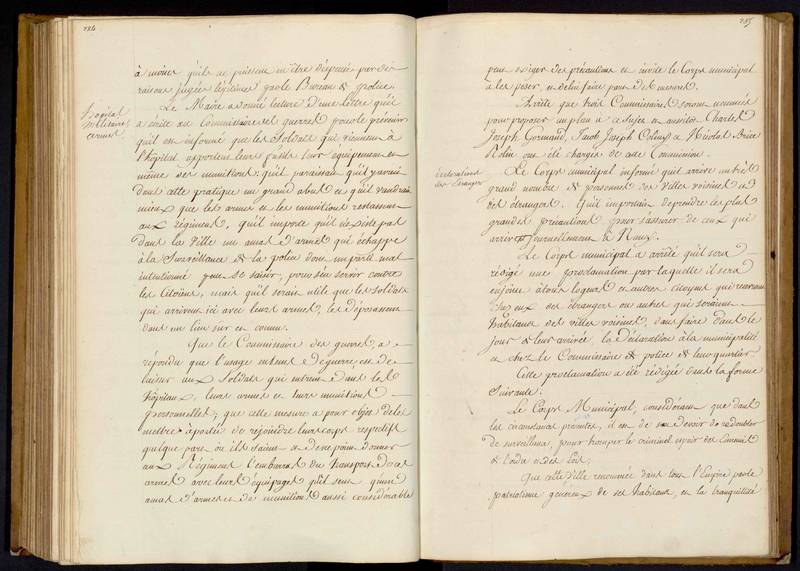 284
à moins qu'ils ne puissent m'être dispensés par des
raisons jugées légitimes par le Bureau de police.
hôpital
militaire
armes
Le Maire a donné lecture d'une lettre qu'il
a écrite au Commissaire des guerres pour le prévenir
qu'il est informé que les Soldats qui viennent à
l'hôpital apportent leurs fusils leur équipement et
même des munitions; qu'il paraissait qu'il y avait
dans cette pratique un grand abus et qu'il vaudrait
mieux que les armes et les munitions restassent
aux régiments, qu'il importe qu'il n'existe pas
dans la Ville un amas d'armes qui échappe
à la Surveillance de la police dont un parti mal
intentionné peut se saisir, pour s'en servir contre
les Citoïens, mais qu'il serait utile que les Soldats
qui arrivent ici avec leurs armes, les déposassent
dans un lieu sur et connu.
Que le Commissaire des guerres, a
répondu que l'usage en tems de guerre, est de
laisser aux Soldats qui entrent dans les
hôpitaux, leurs armes et leurs munitions
personnelles; que cette mesure a pour objet de les
mettre à portée de rejoindre leurs corps respectifs
quelque part où ils soient & de ne point donner
aux Régiments l'embarras du transport de ces
armes avec leurs équipages qu'il sent qu'un
amas d'armes et de munitions aussi considérable
285
peut exiger des précautions et invite le Corps municipal
à les peser, et de lui faire part de ses vues.
Arrête que trois Commissaires seront nommés
pour proposer un plan à ce sujet et aussitôt Charles
Joseph Gormand, Jacob Joseph Coliny & Nicolas Brice
ont été chargés de cette Commission.
déclarations
des étrangers
Le Corps municipal informé qu'il arrive un très
grand nombre de personnes des Villes voisines et
des étrangers. Qu'il important de prendre les plus
grandes précautions pour s'assurer de ceux qui
arrivent journellement à Nancy.
Le Corps municipal a arrêté qu'il sera
rédigé une proclamation par laquelle il sera
enjoint à tous logeurs et autres citoyens qui recevront
chez eux des étrangers ou autres qui seraient
habitans des villes voisines, d'en faire dans le
jour de leur arrivée, la déclaration à la municipalité
ou chez le Commissaire de police de leur quartier.
Cette proclamation a été rédigée dans la forme
suivante.
Le Corps Municipal, considérant que dans
les circonstances présentes, il est de son devoir de redoubler
de surveillance, pour tromper le criminel espoir des Ennemis
de l'ordre et des loix;
Que cette Ville renommée dans tout l'Empire par le
patriotisme généreux de ses habitans, et la tranquillité